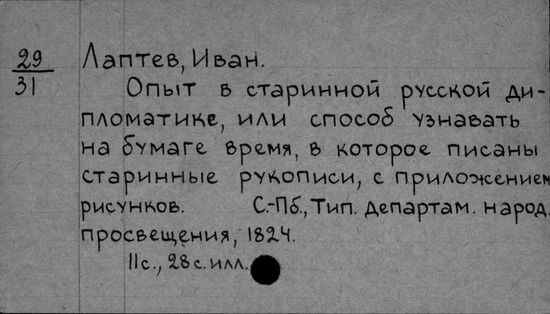 29
31
Лаптев, Иван.
Опыт в старинной русской ди-
пломатике, или способ узнавать
на бумаге время, в которое писаны
старинные рукописи, с приложением
рисунков. С.-Пб., Тип. департам. народ.
просвещения, 1824.
11с., 28с. илл.